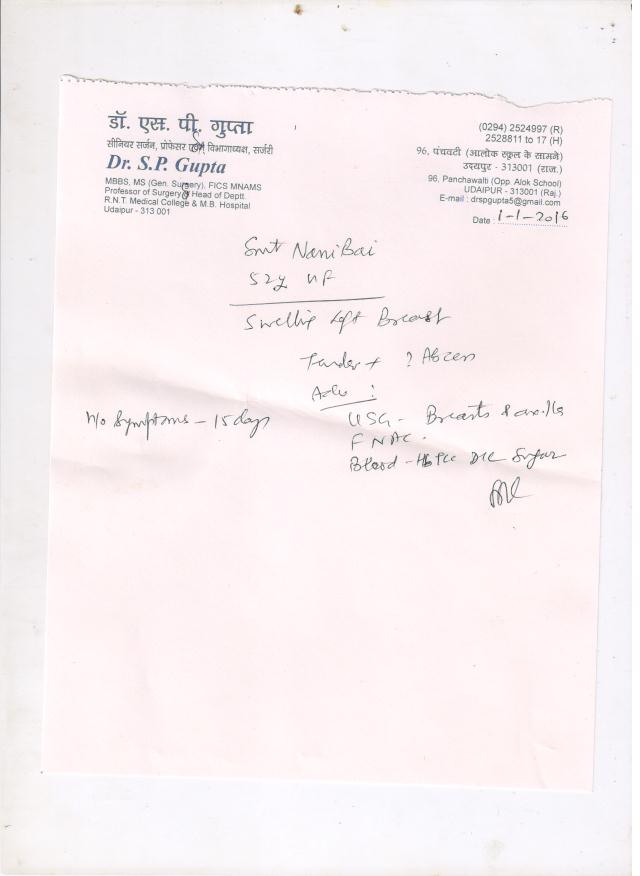 डॉ. एस. पी. गुप्ता
सीनियर सर्जन, प्रोफेसर एवं विभागाध्यक्ष, सर्जरी
Dr. S.P. Gupta
MBBS, MS (Gen. Surgery), FICS MNAMS
Professor of Surgery Head of Deptt.
R.N.T. Medical College & M.B. Hospital
Udaipur - 313 001
(0294) 2524997 (R)
2528811 to 17 (H)
96, पंचवटी (आलोक स्कूल के सामने)
उदयपुर - 313001 (राज.)
96, Panchawati (Opp. Alok School)
UDAIPUR - 313001 (Raj.)
E-mail : drspgupta5@gmail.com
Date : 1-1-2016
Smt Nani Bai
52y F
Swelling Left Breast
Tender + ? Abcess
Adv :
H/o Symptoms - 15 days
USG - Breasts & axilla
FNAC.
Blood - Hb TLC DLC Sugar